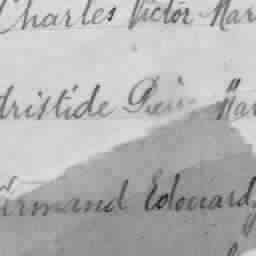 Charles Victor Mar
Aristide Pier Mar
Armand Edouard